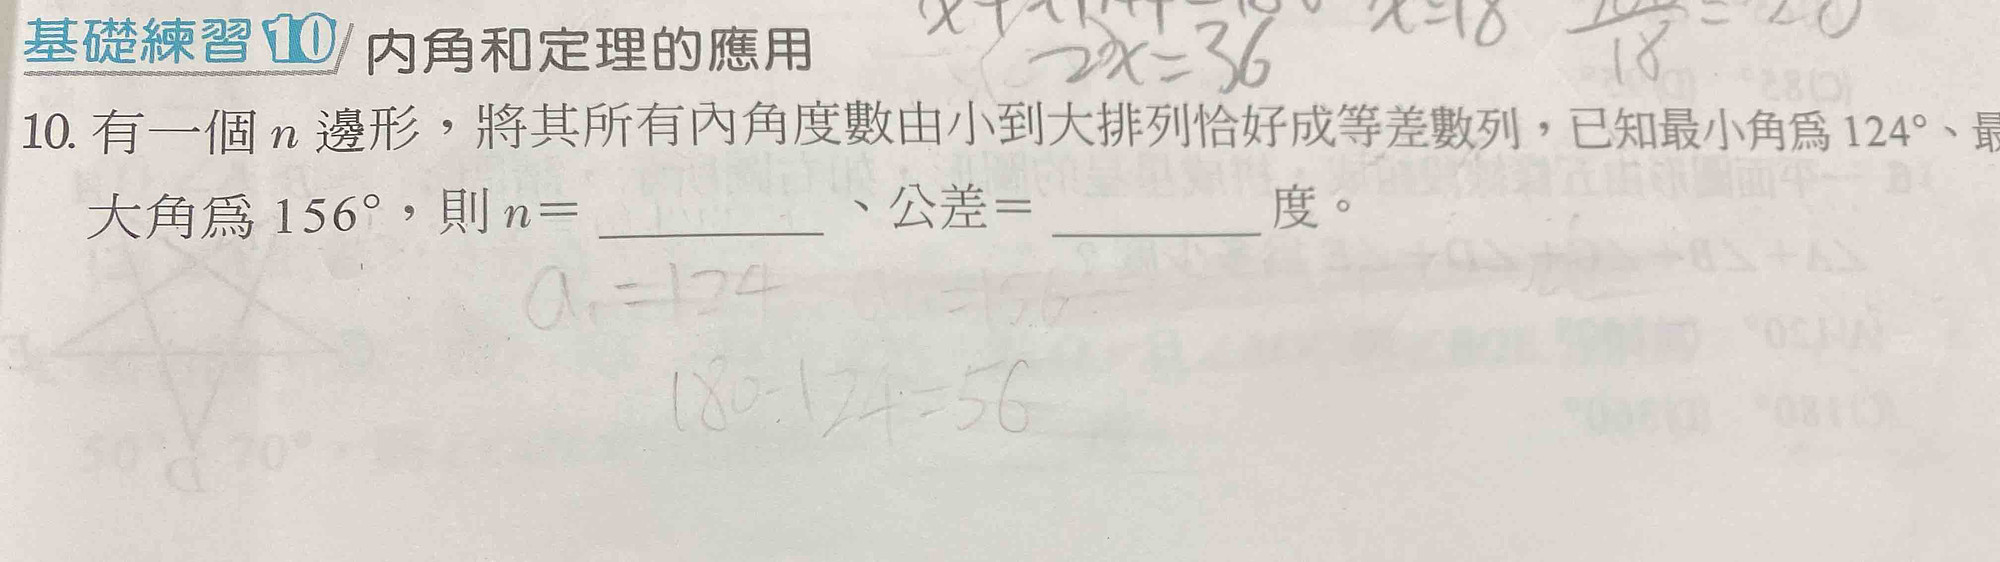 基礎練習10 內角和定理的應用
2x=36
x=18
18
10. 有一個 n 邊形，將其所有內角度數由小到大排列恰好成等差數列，已知最小角為 124°、最
大角為 156°，則 n= ________ 、公差= ________ 度。
a₁=124 =156
180-124=56